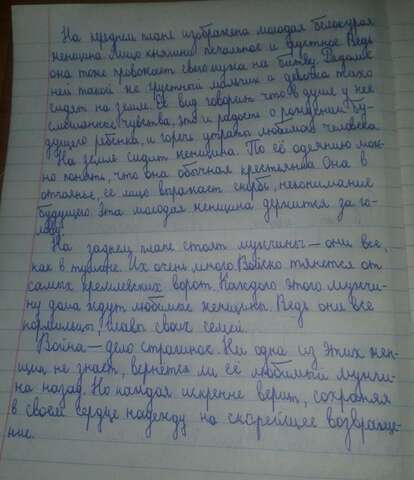 На переднем плане изображена молодая белокурая
женщина. Лицо княгини печальное и грустное. Ведь
она тоже провожает своего мужа на битву. Рядом с
ней такой же грустный мальчик и девочка тихо
сидят на земле. Её вид говорит что в душе у неё
смешанное чувства, это и радость о рождении бу-
дущего ребенка, и горечь утраты любимого человека
На земле сидит женщина. По её одеянию мож-
но понять, что она обычная крестьянка. Она в
отчаянье, её лицо выражает скорбь, непонимание
будущего. Эта молодая женщина держится за го-
лову.
На заднем плане стоят мужчины – они все,
как в тумане. Их очень много. Войско тянется от
самых кремлевских ворот. Каждого этого мужчи-
ну дома ждут любимые женщины. Ведь они все
кормильцы, главы своих семей.
Война – дело страшное. Ни одна из этих жен-
щин не знает, вернется ли её любимый мужчи-
на назад. Но каждая искренне верит, сохраняя
в своём сердце надежду на скорейшее возвраще-
ние.